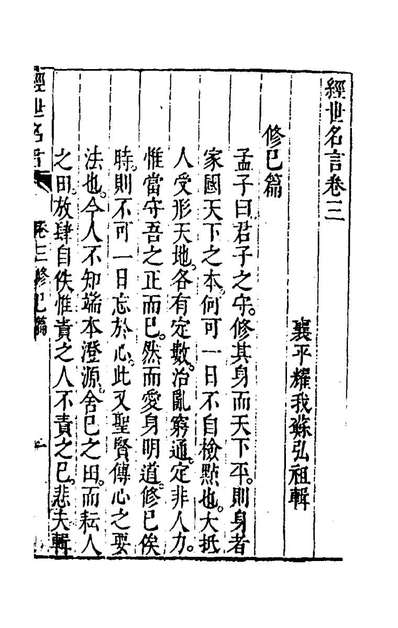 經世名言卷三
襄平耀我蘇弘祖輯
修已篇
孟子曰君子之守。修其身而天下平。則身者
家國天下之本。何可一日不自檢點也。大抵
人受形天地。各有定數。治亂窮通。定非人力。
惟當守吾之正而已。然而愛身明道。修已俟
時。則不可一日忘於心。此又聖賢傳心之要
法也。今人不知端本澄源。舍已之田。而耘人
之田。放肆自佚。惟責之人不責之已。悲夫輯
經世名言
卷三修已篇
一